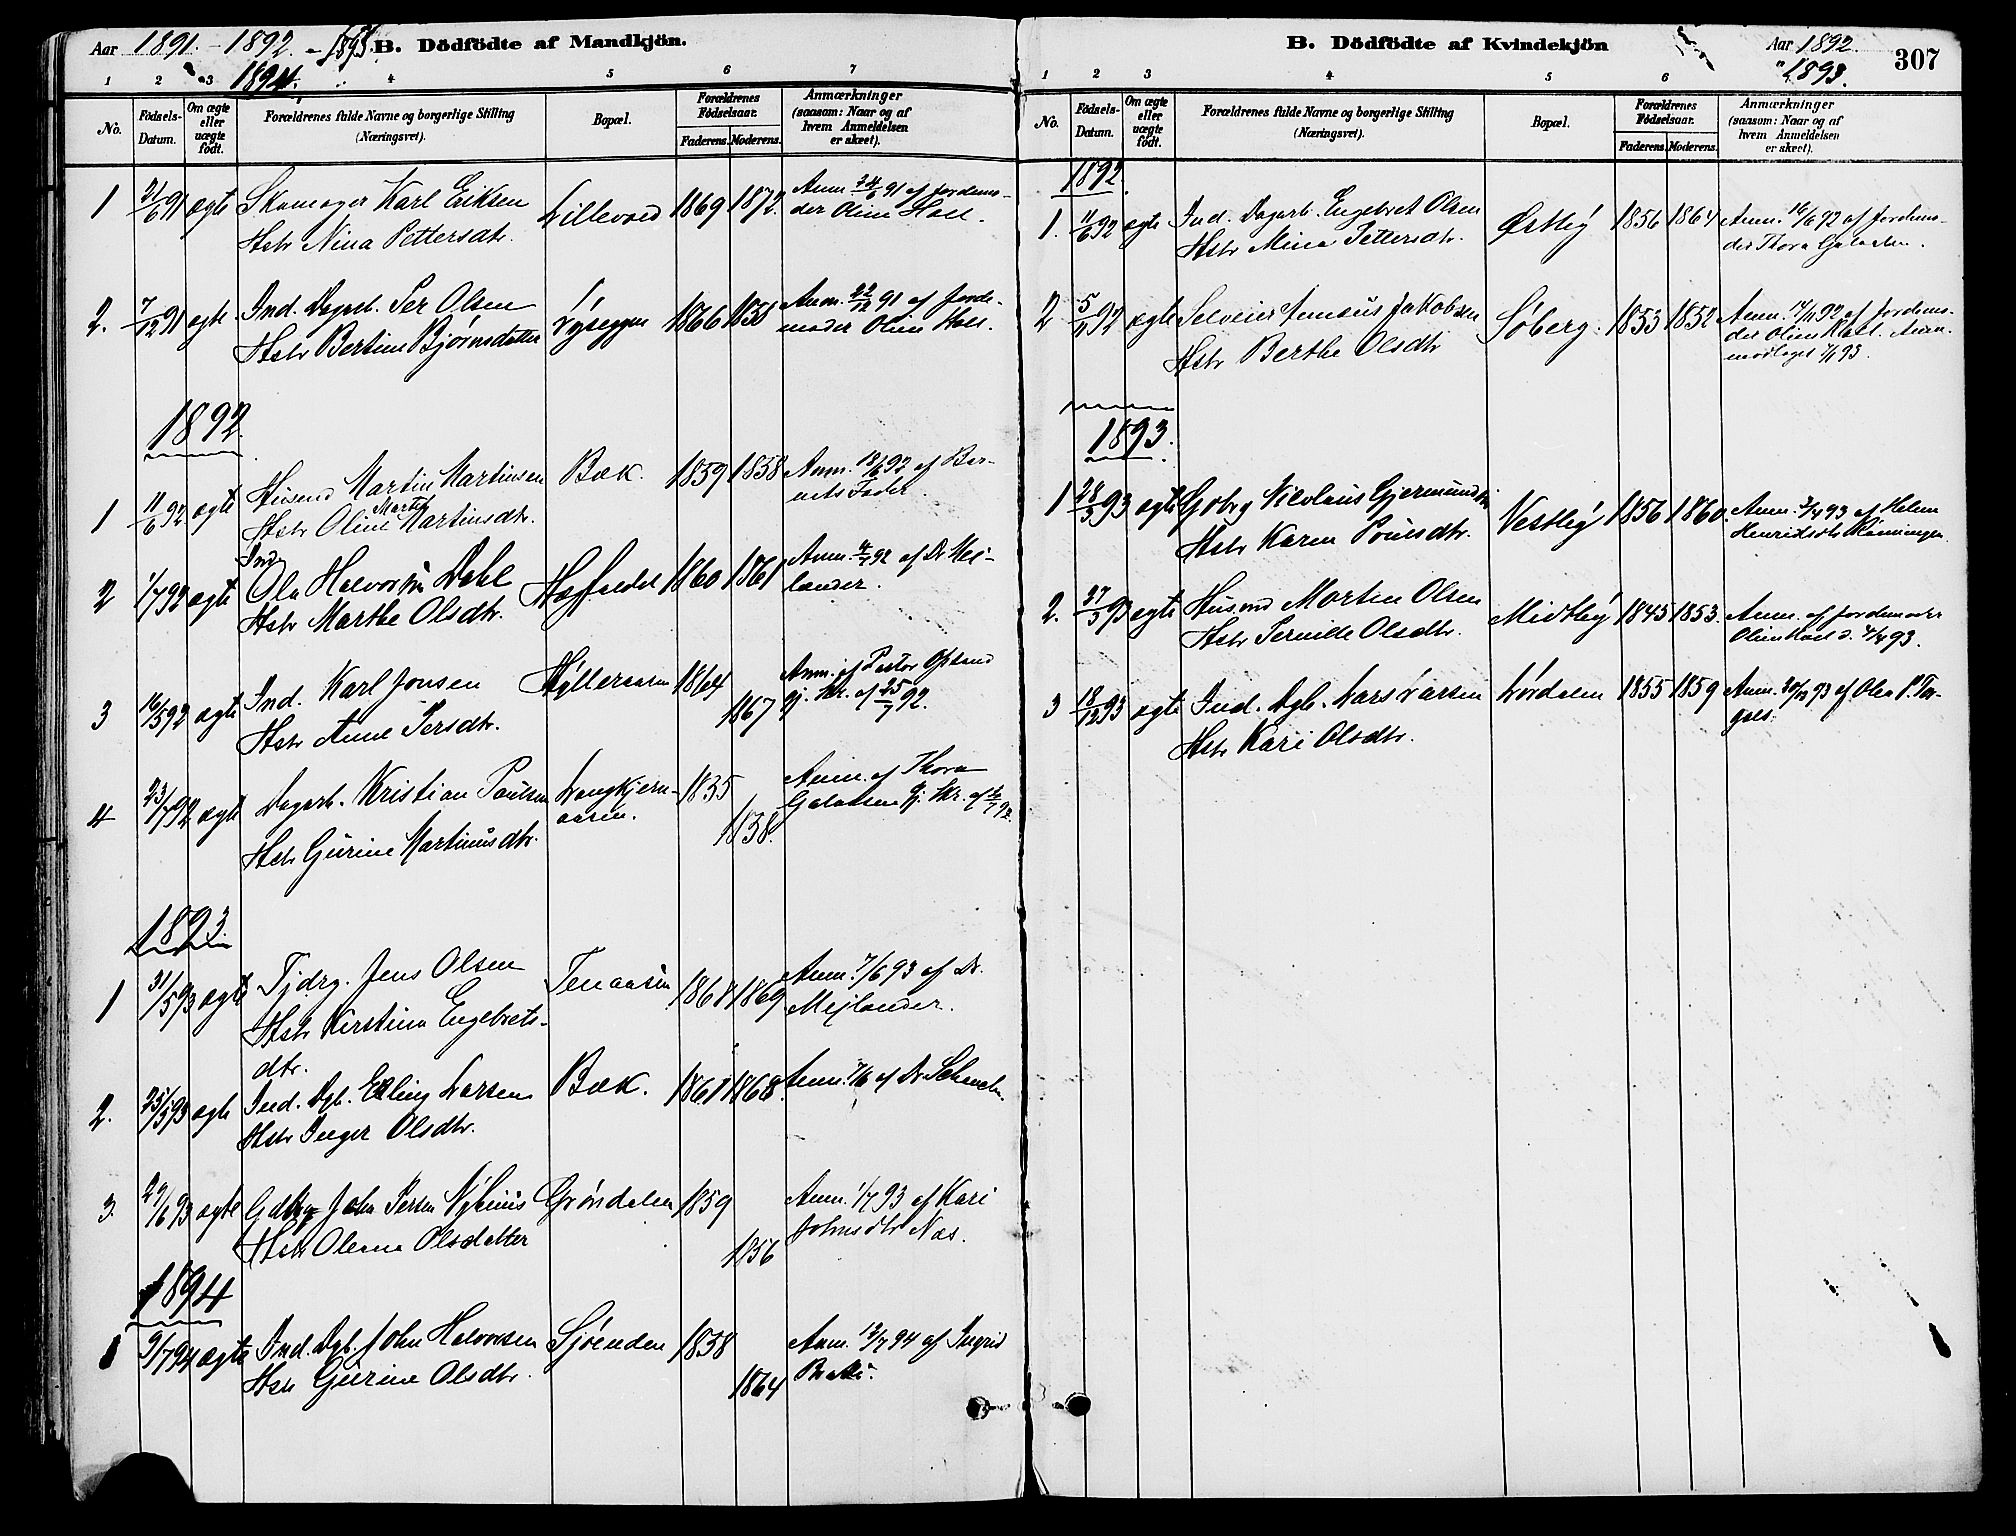 Aar 1891. - 1892. - 1893. B. Dödfödte af Mandkjön.
1894.
1 2 3 4 5 6 7
No. Födsels-Datum. Om ægte eller uægte födt. Forældrenes fulde Navne og borgerlige Stilling (Næringsvei). Bopæl. Forældrenes Födselsaar. Faderens. Moderens. Anmærkninger (saasom: Naar og af hvem Anmeldelsen er skeet).
1 21/6 91 ægte Skomager Karl Eriksen Lillevold 1869 1872. Anm. 24/6 91 af Jordemo-
Hstr Nina Pettersdtr. der Oline Hoel.
2. 7/12 91 ægte Ind. Dagarb. Per Olsen 1866 1858 Anm. 22/12 91 af Jorde-
Hstr Bertine Bjørnsdatter moder Oline Hoel.
1892.
1 11/6 92 ægte Husmd Martin Martinsen Bæk. 1859 1858 Anm. 18/6 92 af Bar-
Hstr Oline Martinsdtr. nets Fader.
Ind.
2 1/7 92 ægte Ola Halvorsen Dahl 1860 1861 Anm. 4/7 92 af Dr Mei-
Hstr Marthe Olsdtr. lænder.
3 16/5 92 ægte Ind. Karl Jonsen 1864 1867 Anm. af Pastor
Hstr Anne Persdtr. gj. Skr. af 25/7 92.
4 23/7 92 ægte Dagarb. Kristian Paulsen Langkjern- 1835 1838. Anm. af Thora
Hstr Gurine Martinusdtr. aasen. Galaasen gj. Skr. af
1893.
1 31/5 93 ægte Jens Olsen Tenaasen 1868 1869 Anm. 7/6 93 af Dr.
Hstr Kirstine Engebrets- Mejlænder.
dtr.
2. 25/5 93 ægte Ind. Dgb. Elling Larsen Bæk. 1868 1868. Anm. 7/6 af Dr
Hstr Inger Olsdtr.
3. 29/6 93 ægte John Persen Nyhuus Grøndalen 1859 1856 Anm. 1/7 93 af Kari
Hstr Oleane Olsdatter Johnsdtr Næs.
1894
1 9/7 94 ægte Ind. Dgb. John Halvorsen Sjøenden 1838 1864 Anm. 12/7 94 af Ingrid
Hstr Gurine Olsdtr.
B. Dödfödte af Kvindekjön Aar 1892. 307
" 1893.
1 2 3 4 5 6
No. Födsels-Datum. Om ægte eller uægte födt. Forældrenes fulde Navne og borgerlige Stilling (Næringsvei). Bopæl. Forældrenes Födselsaar. Faderens. Moderens. Anmærkninger (saasom: Naar og af hvem Anmeldelsen er skeet).
1892.
1. 11/6 92 ægte Ind. Dagarb. Engebret Olsen Østby 1856 1864 Anm. 16/6 92 af Jordemo-
Hstr Mina Pettersdtr. der Thora Galaasen.
2 92 ægte Selveier Jensius Jakobsen Søberg. 1853 1852 Anm. 92 af Jordemo-
Hstr Berthe Olsdtr der Oline Hoel. Anm.
modtaget 93.
1893.
1 28/3 93 ægte Nicolaus Gjermundsen Vestby 1856 1860. Anm. 93 af Helene
Hstr Karen Poulsdtr. Henriksdtr Rønningen.
2. 27/3 93 ægte Husmd Morten Olsen Midtby 1845 1853. Anm. af Jordemoder
Hstr Pernille Olsdtr. Oline Hoel d. 4/4 93.
3 18/12 93 ægte Ind. Dgb. Lars Larsen Lørdalen 1855 1859 Anm. 30/12 93 af Olea P.
Hstr Kari Olsdtr.